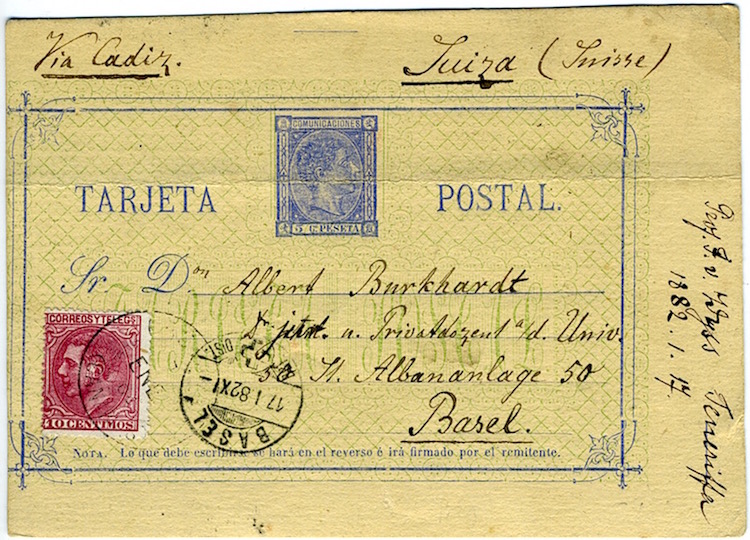 Via Cadiz.
Suiza (Suisse)
COMUNICACIONES
TARJETA POSTAL.
5 C. PESETA
Sr. Dn Albert Burkhardt
CORREOS Y TELEGS
jur. u. Privatdozent a/d. Univ.
50 St. Albananlage 50
ENE
17 I 82 XI
BASEL
Basel.
10 CENTIMOS
NOTA. Lo que debe escribirse se hará en el reverso é irá firmado por el remitente.
Prof. F. v. Wyss Teneriffa
1882. 1. 17.